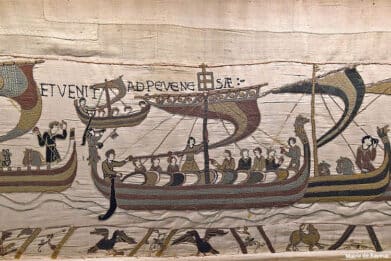 ET VENIT AD PEVENE SÆ:-
Mairie de Bayeux